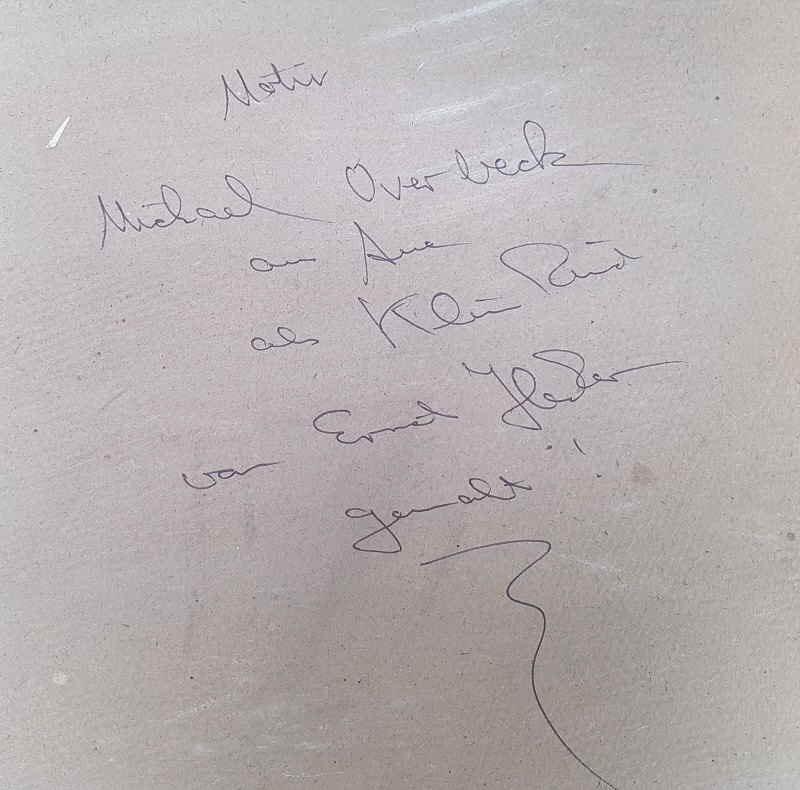 Motiv
Michael Overbeck
aus Aue
als Klein Kind
von Ernst
gemalt !!